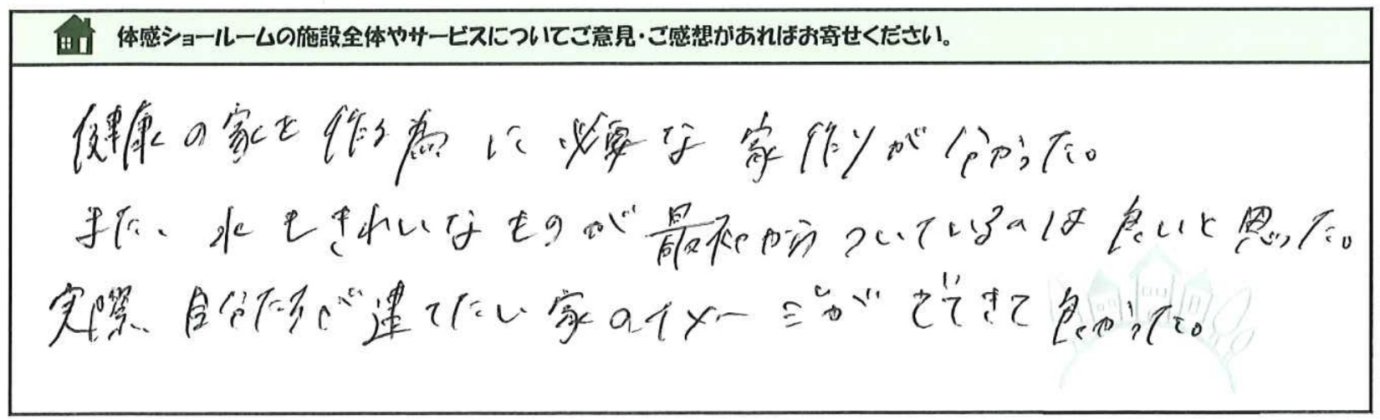 体感ショールームの施設全体やサービスについてご意見・ご感想があればお寄せください。
健康の家を作る為に必要な家作りが分かった。
また、水もきれいなものが最初からついているのは良いと思った。
実際、自分たちが建てたい家のイメージがでてきて良かった。